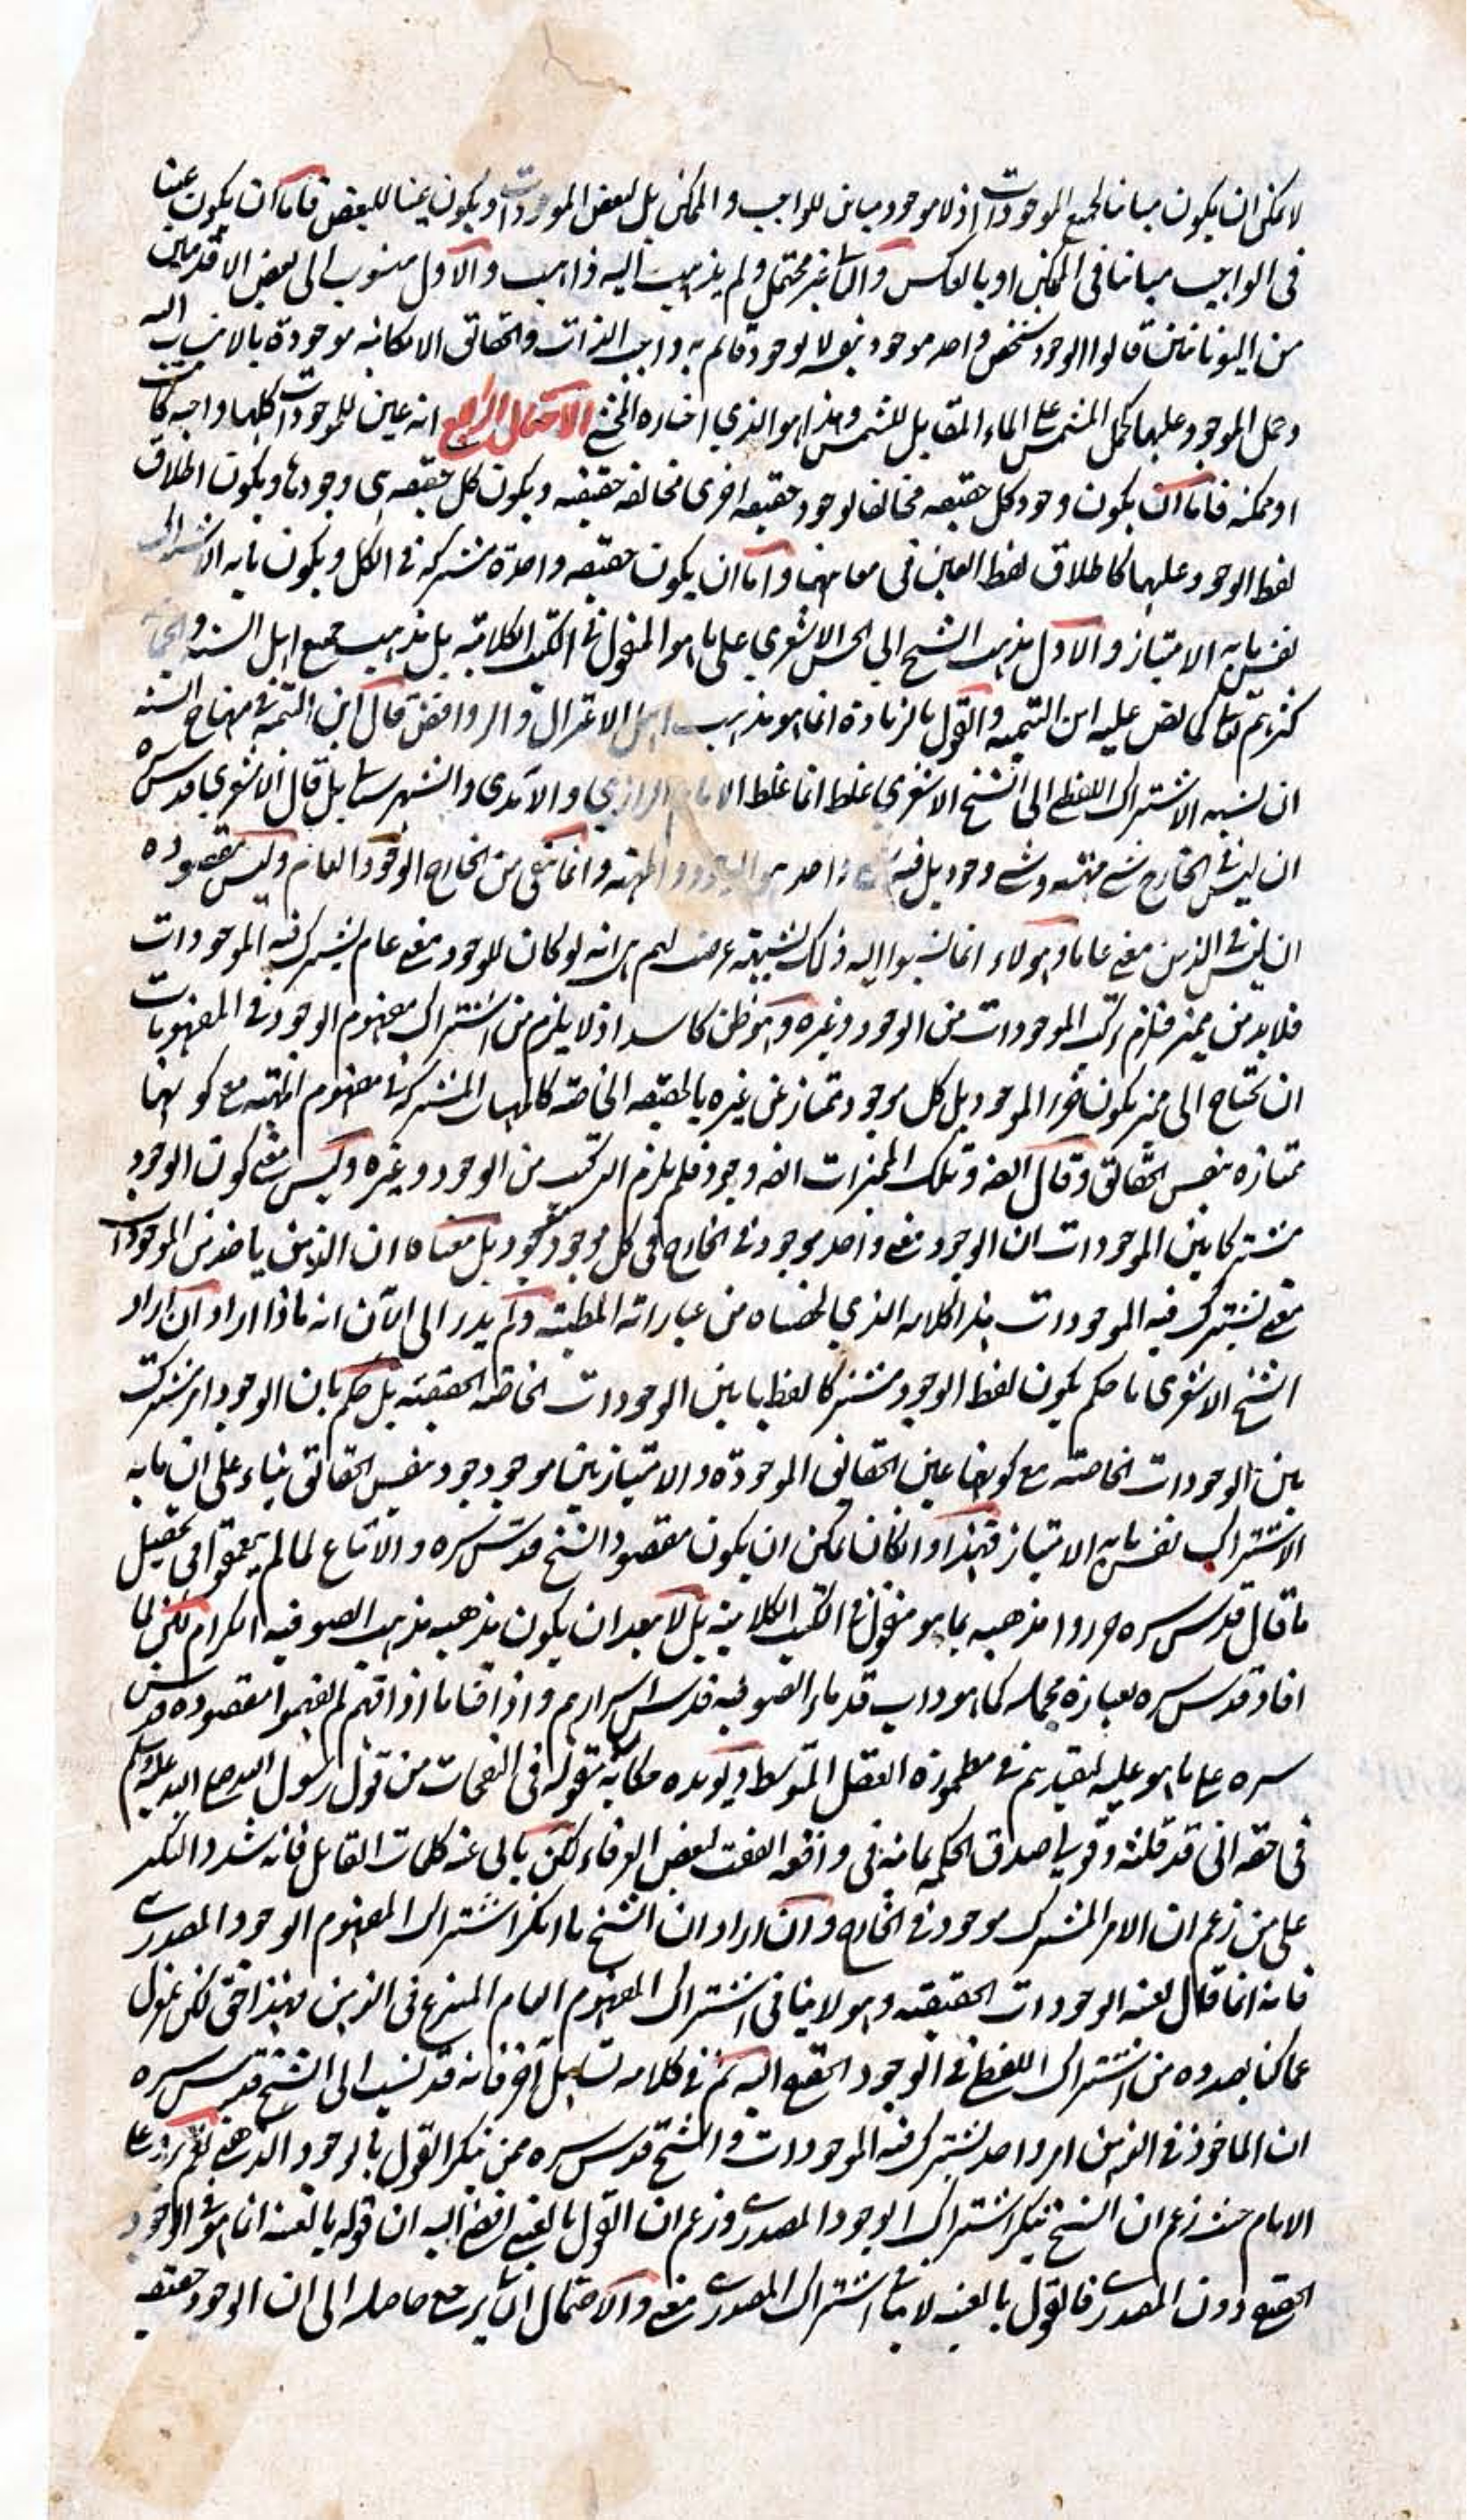 لا يمكن ان يكون مباينا لجميع الموجودات اذ لا موجود مباين للواجب و الممكن بل لبعض الموجودات و يكون عينا للبعض فاما ان يكون عينا
فى الواجب مباينا فى الممكن او بالعكس و الثانى غير محتمل و لم يذهب اليه ذاهب و الاول منسوب الى بعض الاقدمين
من اليونانيين قالوا الوجود شخص واحد موجود بنفسه لا بوجود قائم به واجب الذات و الحقائق الامكانيه موجودة بالانتساب اليه
و حمل الموجود عليها كحمل المشمس على الماء المقابل للشمس و هذا هو الذي اختاره المحشى الاحتمال الرابع انه عين للموجودات كلها واجبه كانت
او ممكنه فاما ان يكون وجود كل حقيقه مخالفا لوجود حقيقه اخرى مخالفه حقيقه و يكون كل حقيقه هى وجودها و يكون اطلاق
لفظ الوجود عليها كاطلاق لفظ العين فى معانيها و اما ان يكون حقيقه واحدة مشتركه فى الكل و يكون ما به الاشتراك
نفس ما به الامتياز و الاول مذهب الشيخ ابي الحسن الاشعري على ما هو المنقول فى الكتب الكلاميه بل مذهب جميع اهل السنه و الجماعه
كثرهم الله تعالى كما نص عليه ابن التيميه و القول بالزيادة انما هو مذهب اهل الاعتزال و الروافض قال ابن التيميه فى منهاج السنه
ان نسبه الاشتراك اللفظى الى الشيخ الاشعري غلط انما غلط الامام الرازي و الآمدى و الشهرستانى بل قال الاشعري قدس سره
ان ليس فى الخارج شئ مهيته و شئ وجود بل فيه شئ واحد هو الوجود و المهيه و انما نفى من الخارج الوجود العام و ليس مقصوده
ان ليس فى الذهن معنى عاما و هولاء انما نسبوا اليه ذلك لشبهة عرضت لهم هى انه لو كان للوجود معنى عام يشترك فيه الموجودات
فلا بد من مميز فلزم تركب الموجودات من الوجود و غيره و هو ظن كاسد اذ لا يلزم من اشتراك مفهوم الوجود فى المفهومات
ان تحتاج الى مميز يكون غير الموجود بل كل موجود ممتاز عن غيره بالحقيقه الخاصه كالمهيات المشتركه فى مفهوم المهيه مع كونها
ممتازه بنفس الحقائق و قال ايضا و تلك المميزات ايضا وجود فلم يلزم التركيب من الوجود و غيره و ليس معنى كون الوجود
مشتركا بين الموجودات ان الوجود معنى واحد موجود فى الخارج فى كل موجود موجود بل معناه ان الذهن ياخذ من الموجودات
معنى يشترك فيه الموجودات هذا كلامه الذي لخصناه من عباراته المطنبه و لم يدر الى الآن انه ما ذا اراد ان اراد
الشيخ الاشعرى ما حكم بكون لفظ الوجود مشتركا لفظيا بين الوجودات الخاصه الحقيقيه بل حكم بان الوجود امر مشترك
بين الوجودات الخاصه مع كونها عين الحقائق الموجودة و الامتياز بين موجود موجود بنفس الحقائق بناء على ان ما به
الاشتراك نفس ما به الامتياز فهذا و ان كان يمكن ان يكون مقصود الشيخ قدس سره و الاتباع لما لم يتعمقوا فى تحصيل
ما قال قدس سره حرروا مذهبه بما هو منقول فى الكتب الكلامية بل لا يبعد ان يكون مذهبه مذهب الصوفيه الكرام لكن لما
افاد قدس سره بعبارة مجمله كما هو داب قدماء الصوفيه قدس اسرارهم و اذاقنا ما اذاقهم لم يفهموا مقصوده قدس
سره على ما هو عليه لتقيدهم فى مطمورة العقل المتوسط و يؤيده حكايه منقوله فى النفحات من قول رسول الله صلى الله عليه و سلم
فى حقه انى قد قلته و قولى صدق الحكمه يمانيه فى واقعه اتفقت لبعض العرفاء لكن يابى عنه كلمات القائل فانه شدد النكير
على من زعم ان الامر المشترك موجود فى الخارج و ان اراد ان الشيخ ما انكر اشتراك المفهوم الوجود المصدرى
فانه انما قال بعينيه الوجودات الحقيقيه و هو لا ينافى اشتراك المفهوم العام المنتزع فى الذهن فهذا حق لكن عزل
عما كنا بصدده من اشتراك اللفظى فى الوجود الحقيقى اليه ثم فى كلامه تساهل آخر فانه قد نسب الى الشيخ قدس سره
ان الماخوذ فى الذهن امر واحد يشترك فيه الموجودات و الشيخ قدس سره ممن ينكر القول بالوجود الذهنى نعم يرد على
الامام حيث زعم ان الشيخ ينكر اشتراك الوجود المصدرى و زعم ان القول بالعينيه افضى اليه ان قوله بالعينيه انما هو فى الوجود
الحقيقى دون المصدرى فالقول بالعينيه لا ينافى اشتراك المصدرى معنى و الاحتمال الثانى يرجع حاصله الى ان الوجود حقيقه